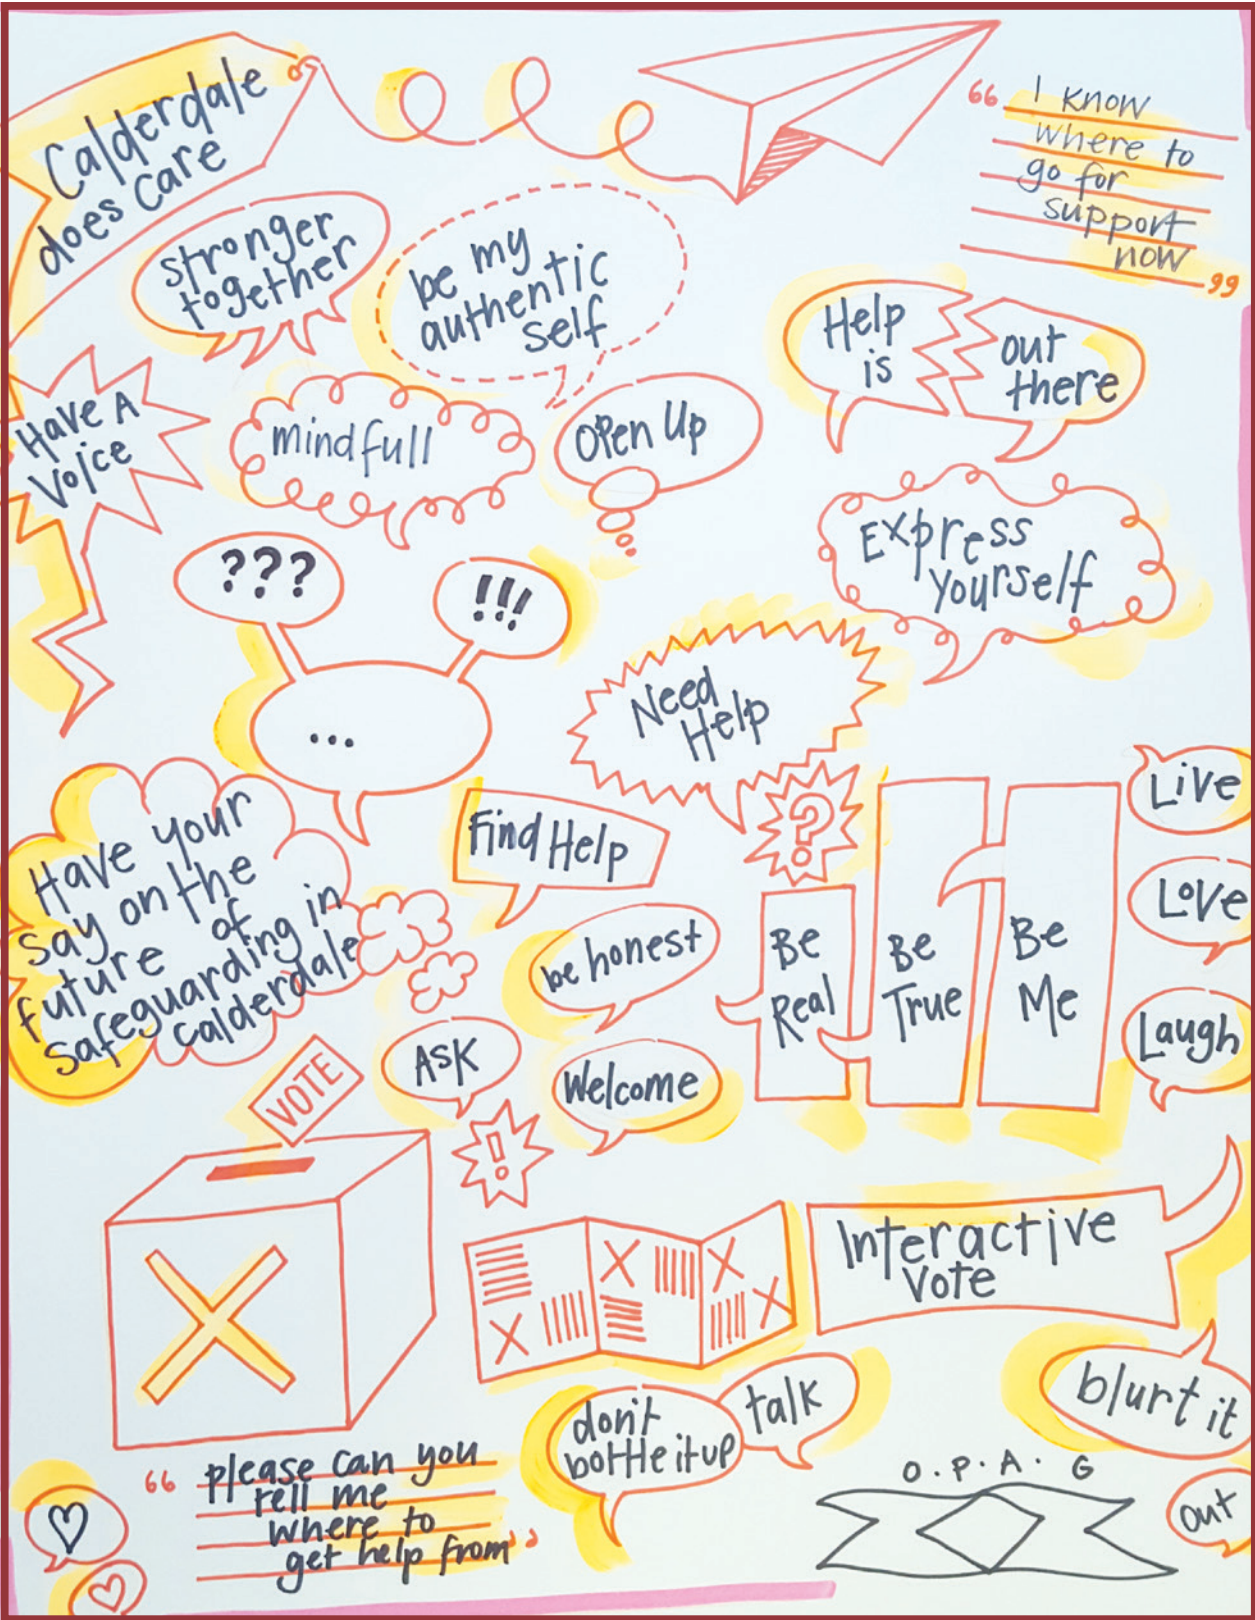 Calderdale
does care
“ I know
where to
go for
support
now ”
stronger
together
be my
authentic
self
Help
is
out
there
Have A
Voice
mindfull
Open Up
Express
yourself
???
!!!
...
Need
Help
?
Have your
say on the
future of
safeguarding in
calderdale
Find Help
be honest
Be
Real
Be
True
Be
Me
Live
Love
Laugh
ASK
Welcome
VOTE
!
Interactive
vote
don't
bottle it up
talk
blurt it
out
“ please can you
tell me
where to
get help from ”
O.P.A.G